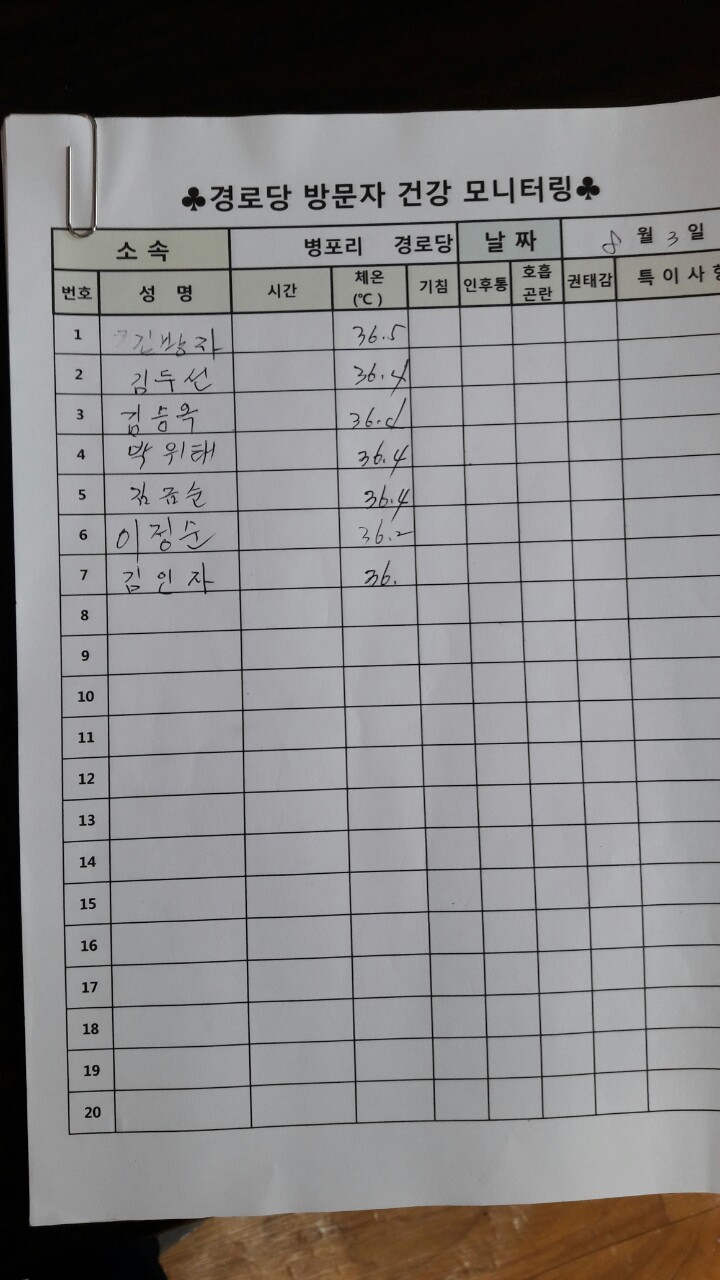 ♣경로당 방문자 건강 모니터링♣
소 속 병포리 경로당 날 짜 8 월 3 일
번호 성 명 시간 체온 (℃) 기침 인후통 호흡 곤란 권태감 특 이 사
1 36.5
2 김두선 36.4
3 김승옥
4 박위태 36.4
5 김금순 36.4
6 이정순 36.2
7 김인자 36.
8
9
10
11
12
13
14
15
16
17
18
19
20